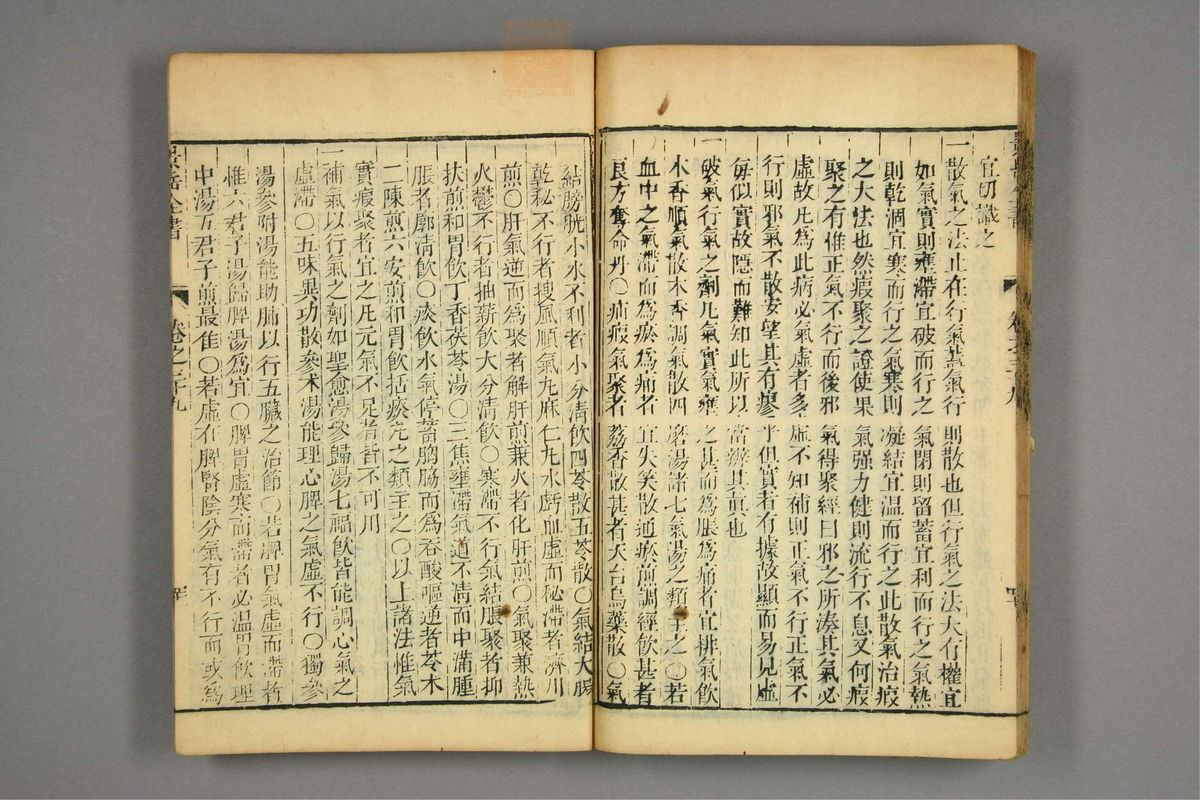 宜切識之
一散氣之法止在行氣蓋氣行則散也但行氣之法大有權宜
如氣實則壅滯宜破而行之氣閉則留蓄宜利而行之氣熱
則乾涸宜寒而行之氣寒則凝結宜温而行之此散氣治瘕
之大法也然瘕聚之證使果氣强力健則流行不息又何瘕
聚之有惟正氣不行而後邪氣得聚經曰邪之所湊其氣必
虛故凡爲此病必氣虛者多虛不知補則正氣不行正氣不
行則邪氣不散安望其有瘳乎但實者有據故顯而易見虛
每似實故隱而難知此所以當辨其真也
一破氣行氣之劑凡氣實氣壅之甚而爲脹爲痛者宜排氣飲
木香順氣散木香調氣散四磨湯諸七氣湯之類主之〇若
血中之氣滯而爲瘀爲痛者宜失笑散通瘀煎調經飲甚者
良方奪命丹〇疝瘕氣聚者荔香散甚者天台烏藥散〇氣
結膀胱小水不利者小分清飲四苓散五苓散〇氣結大腸
乾秘不行者搜風順氣丸麻仁丸水虧血虛而秘滯者濟川
煎〇肝氣逆而爲聚者解肝煎兼火者化肝煎〇氣聚兼熱
火鬱不行者抽薪飲大分清飲〇寒滯不行氣結脹聚者抑
扶煎和胃飲丁香茯苓湯〇三焦壅滯氣道不清而中滿腫
脹者廓清飲〇痰飲水氣停蓄胸脇而爲吞酸嘔逆者苓术
二陳煎六安煎和胃飲括痰丸之類主之〇以上諸法惟氣
實瘕聚者宜之凡元氣不足者皆不可用
一補氣以行氣之劑如聖愈湯參歸湯七福飲皆能調心氣之
虛滯〇五味異功散參术湯能理心脾之氣虛不行〇獨參
湯參附湯能助肺以行五臟之治節〇若脾胃氣虛而滯者
惟六君子湯歸脾湯爲宜〇脾胃虛寒而滯者必温胃飲理
中湯五君子煎最佳〇若虛在脾腎陰分氣有不行而或爲
景岳全書
卷之二十九